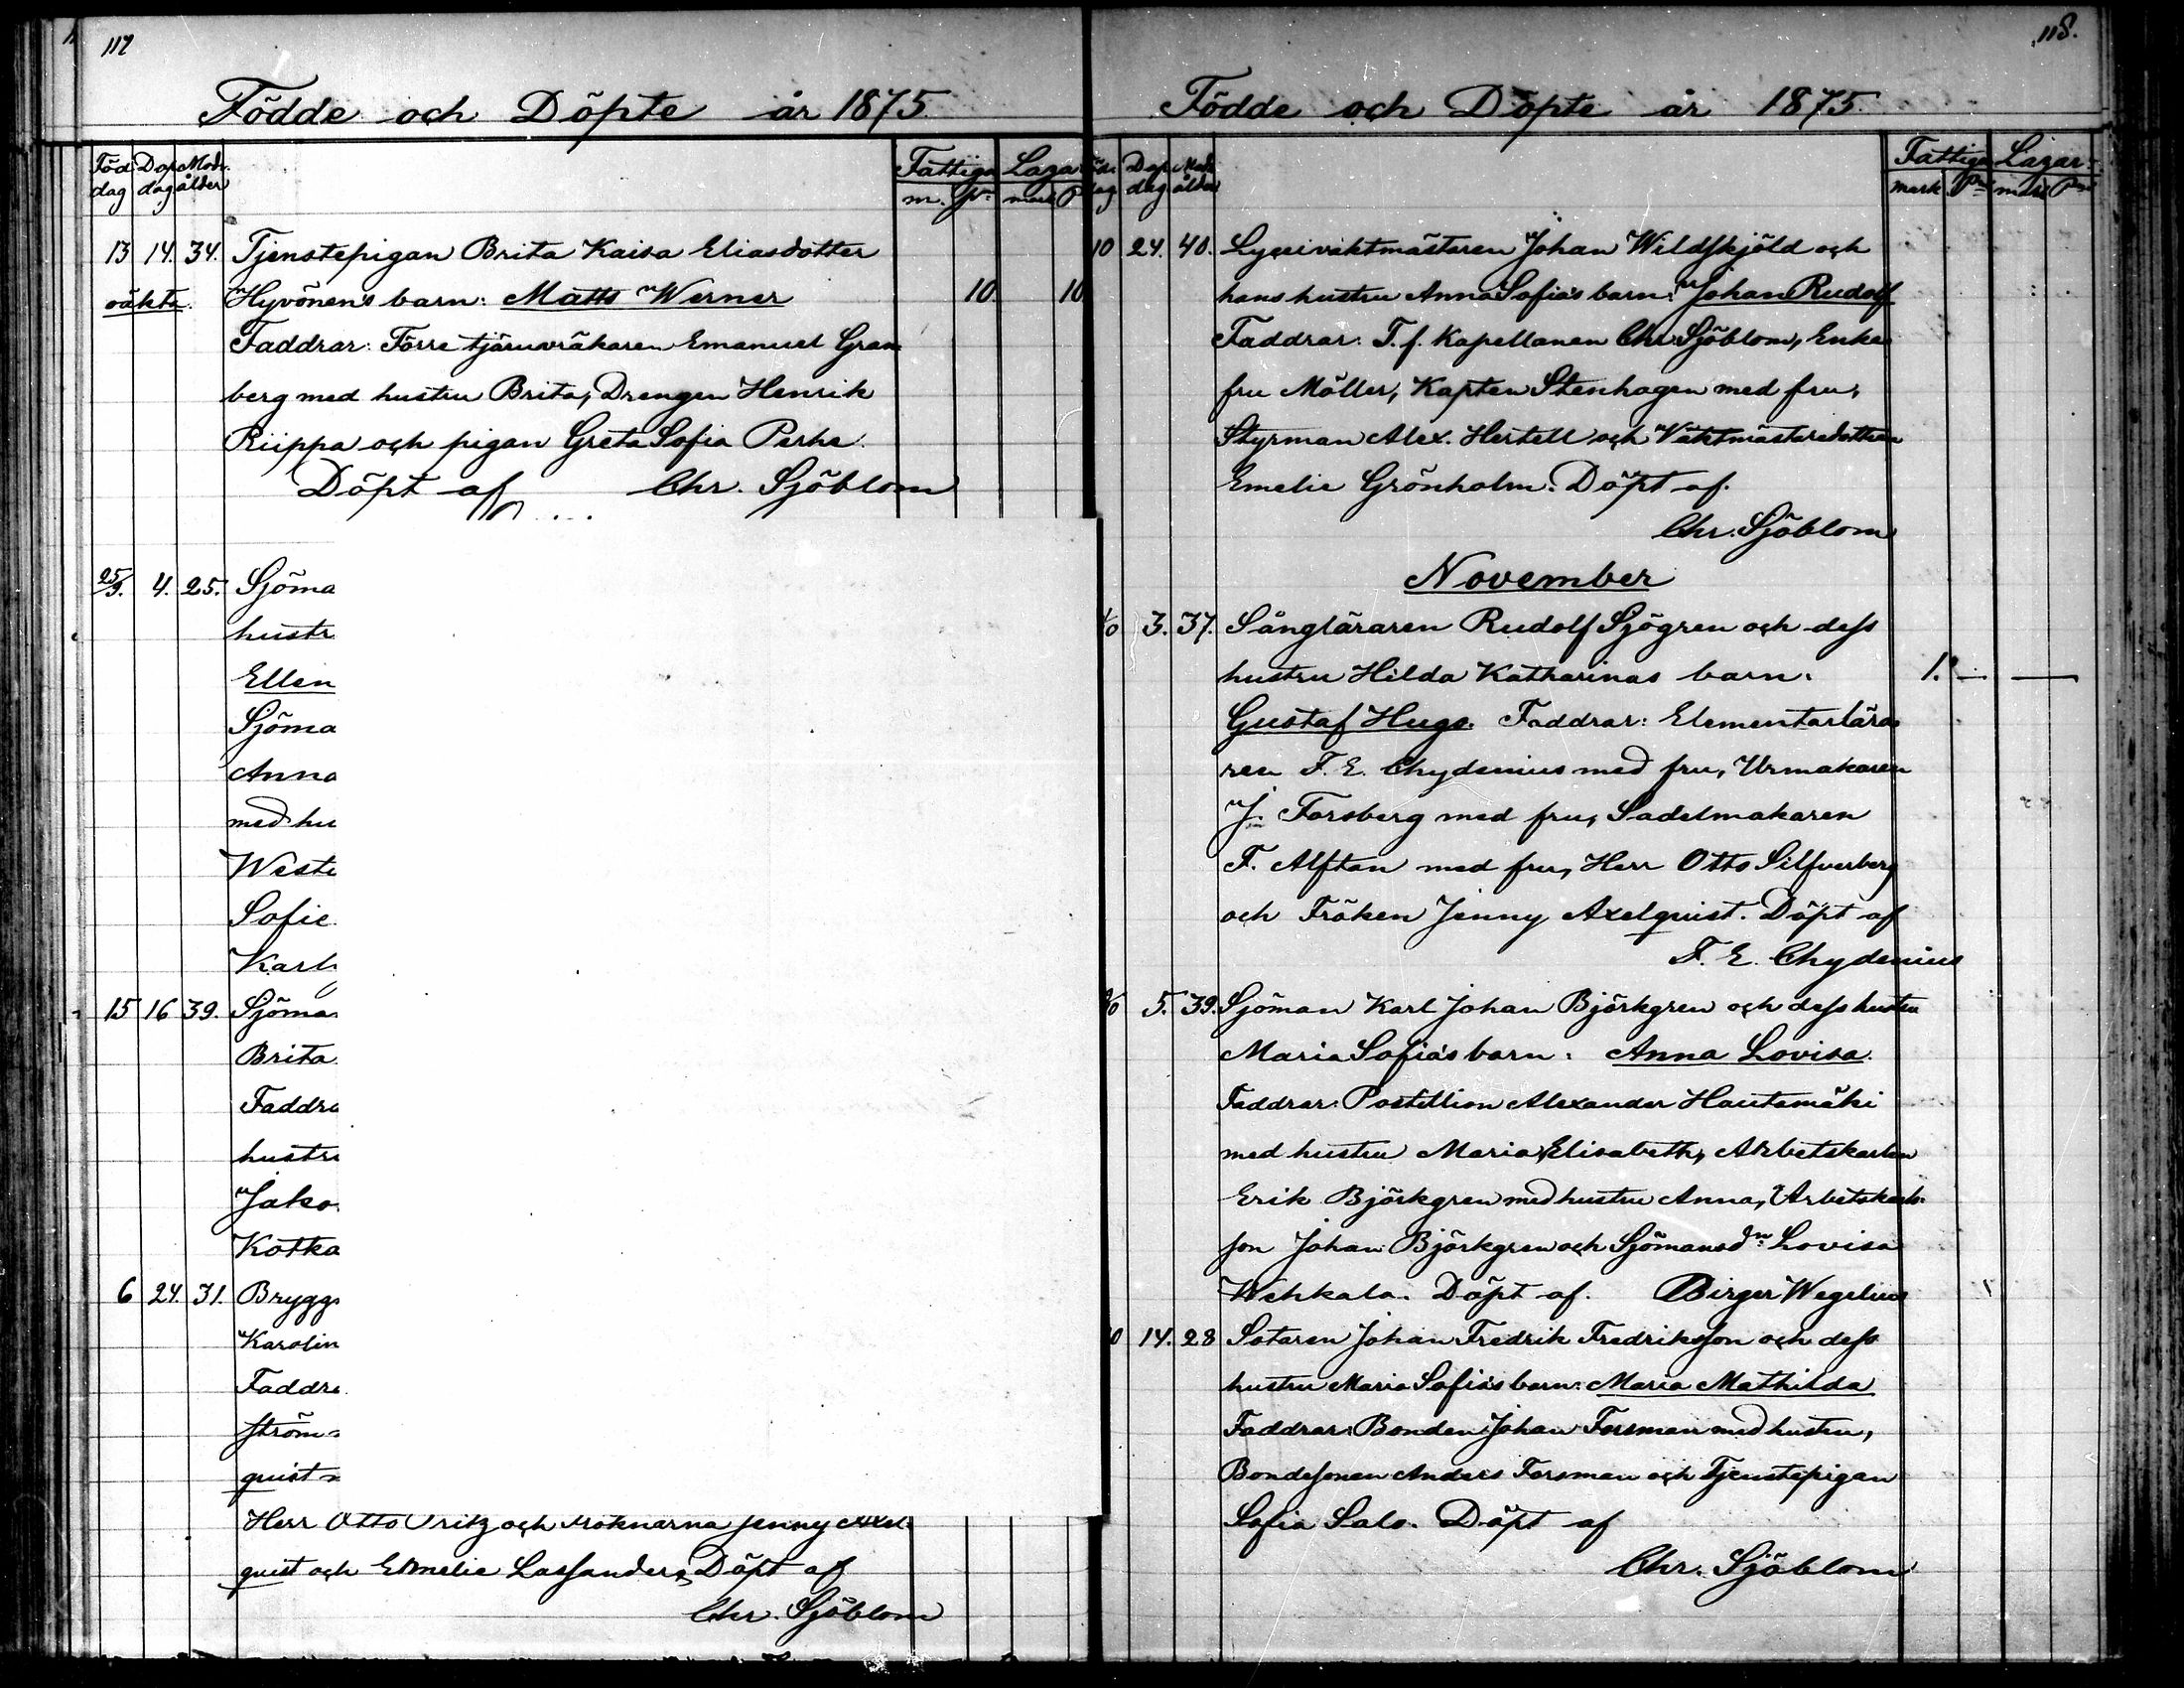 117
Födde och Döpte år 1875.
Föd. dag Dop dag Mod. ålder Fattiga Lazar
m. pn mark P
13 14. 34. Tjenstepigan Brita Kaisa Eliasdotter
oäkta. Hyvönen's barn: Matts Werner 10. 10
Faddrar: Förre tjäruvräkaren Emanuel Gran
berg med hustru Brita, Drengen Henrik
Riippa och pigan Greta Sofia Perhe.
Döpt af Chr. Sjöblom
25/9. 4. 25. Sjöma
hustr
Ellen
Sjöma
Anna
med hu
Weste
Sofie
Karl
15 16 39. Sjöma
Brita
Faddra
hustr
Jako
Kotka
6 24. 31. Brygg
Karolin
Faddra
ström
quist
Herr Otto Fritz och Fröknarna Jenny Axel-
quist och Emelie Lassander, Döpt af
Chr. Sjöblom
118.
Födde och Döpte år 1875
dag Dop dag Mod ålder Fattiga Lazar-
mark Pni mark Pni
10 24. 40. Lyceivaktmästaren Johan Wildskjöld och
hans hustru Anna Sofias barn: Johan Rudolf
Faddrar: T. f. Kapellanen Chr. Sjöblom, Enke
fru Möller, Kapten Stenhagen med fru,
Styrman Alex. Hertell och Vaktmästaredottren
Emelie Grönholm. Döpt af.
Chr. Sjöblom
November
3. 37. Sångläraren Rudolf Sjögren och dess
hustru Hilda Katharinas barn: 1. — —
Gustaf Hugo. Faddrar: Elementarlära
ren F. E. Chydenius med fru, Urmakaren
J. Forsberg med fru, Sadelmakaren
F. Alftan med fru, Herr Otto Silfverberg
och Fröken Jenny Axelquist. Döpt af
F. E. Chydenius
5. 39. Sjöman Karl Johan Björkgren och dess hustru
Maria Sofia's barn: Anna Lovisa.
Faddrar: Postillion Alexander Hautamäki
med hustru Maria Elisabeth, Arbetskarlen
Erik Björkgren med hustru Anna, Arbetskarls-
son Johan Björkgren och Sjömansdn Lovisa
Wehkala. Döpt af. Birger Wegelius
14. 28 Sotaren Johan Fredrik Fredriksson och dess
hustru Maria Sofia's barn: Maria Mathilda
Faddrar: Bonden Johan Forsman med hustru,
Bondesonen Anders Forsman och Tjenstepigan
Sofia Salo. Döpt af
Chr. Sjöblom